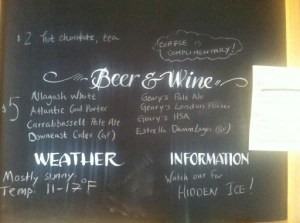 $2 Hot chocolate, tea
COFFEE IS
COMPLIMENTARY!
Beer & Wine
$5
Allagash White
Atlantic Coal Porter
Carrabassett Pale Ale
Downeast Cider (GF)
Geary's Pale Ale
Geary's London Porter
Geary's HSA
Estrella Damm Lager (GF)
WEATHER
Mostly sunny
Temp: 11-17°F
INFORMATION
Watch out for
HIDDEN ICE!